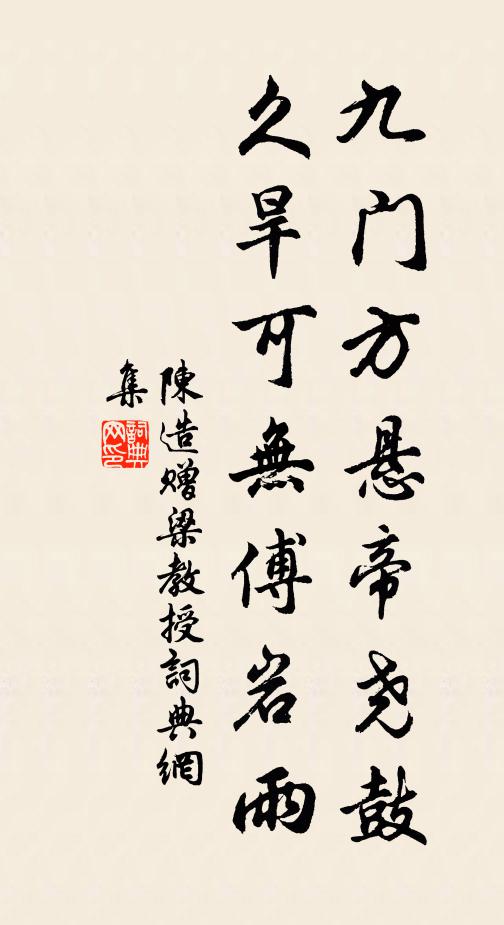 九门方悬帝尧鼓
久旱可無傅岩雨
陳造贈梁教授詞典網
集
詞典
网印